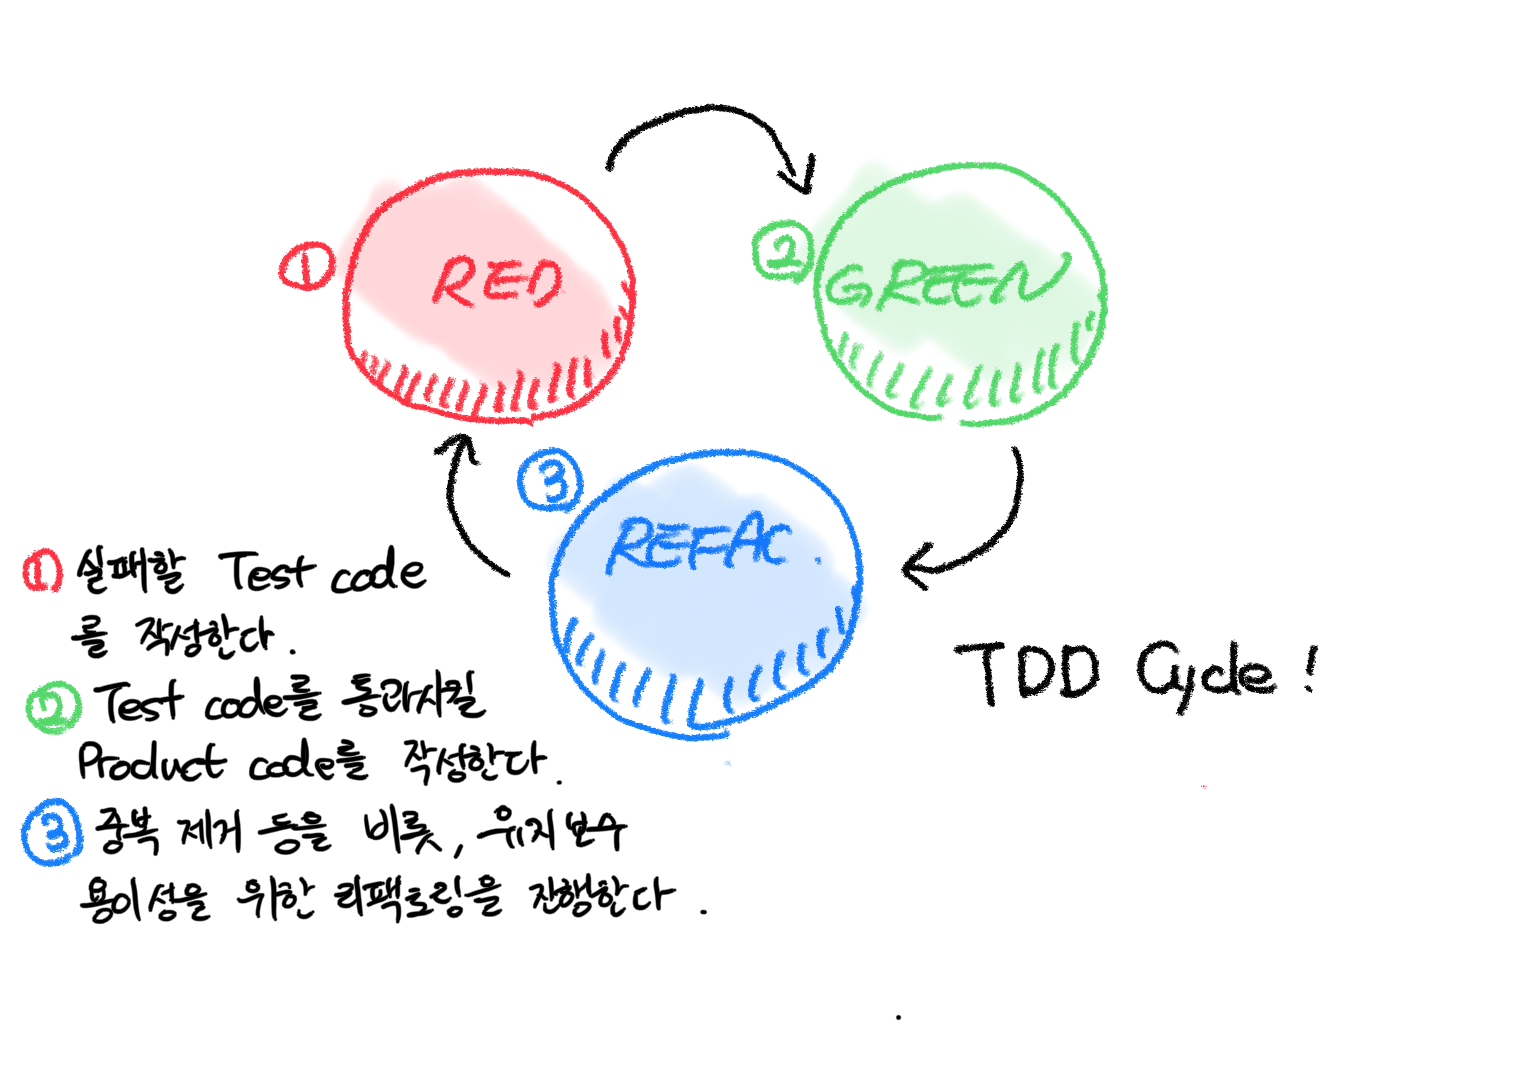 ① RED
② GREEN
③ REFAC.
① 실패할 Test code
를 작성한다.
② Test code를 통과시킬
Product code를 작성한다.
③ 중복 제거 등을 비롯, 유지보수
용이성을 위한 리팩토링을 진행한다.
TDD Cycle !